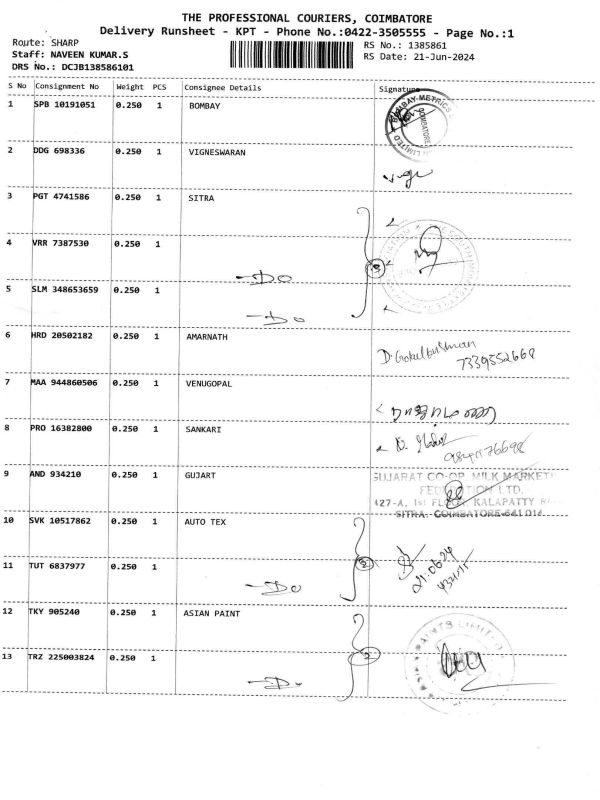 THE PROFESSIONAL COURIERS, COIMBATORE
Delivery Runsheet - KPT - Phone No.:0422-3505555 - Page No.:1
Route: SHARP
RS No.: 1385861
Staff: NAVEEN KUMAR.S
RS Date: 21-Jun-2024
DRS No.: DCJB138586101
S No Consignment No Weight PCS Consignee Details Signature
1 SPB 10191051 0.250 1 BOMBAY
COIMBATORE
2 DDG 698336 0.250 1 VIGNESWARAN
3 PGT 4741586 0.250 1 SITRA
4 VRR 7387530 0.250 1
-Do
5 SLM 348653659 0.250 1
-Do
6 HRD 20502182 0.250 1 AMARNATH
7339552668
7 MAA 944860506 0.250 1 VENUGOPAL
8 PRO 16382800 0.250 1 SANKARI
9 AND 934210 0.250 1 GUJART
GUJARAT CO-OP. MILK MARKET
LTD.
KALAPATTY
SITRA, COIMBATORE-641 014
10 SVK 10517862 0.250 1 AUTO TEX
21.06.24
11 TUT 6837977 0.250 1
-Do
12 TKY 905240 0.250 1 ASIAN PAINT
13 TRZ 225003824 0.250 1
-Do